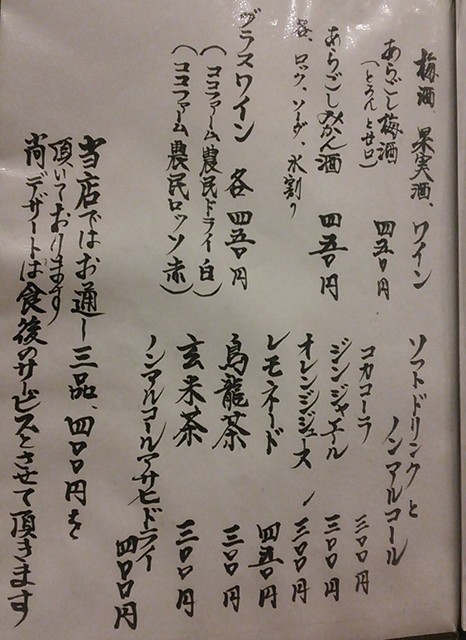 梅酒、果実酒、ワイン
あらごし梅酒 四五〇円
(とろんと甘口)
あらごしみかん酒 四五〇円
各、ロック、ソーダ、水割り
グラスワイン 各 四五〇円
(ココファーム農民ドライ 白)
(ココファーム農民ロッソ 赤)
ソフトドリンクと
ノンアルコール
コカコーラ 三〇〇円
ジンジャエール 三〇〇円
オレンジジュース 三〇〇円
レモネード 四五〇円
烏龍茶 三〇〇円
玄米茶 三〇〇円
ノンアルコールアサヒドライ
四〇〇円
当店ではお通し三品、四〇〇円を
頂いております
尚デザートは食後のサービスとさせて頂きます